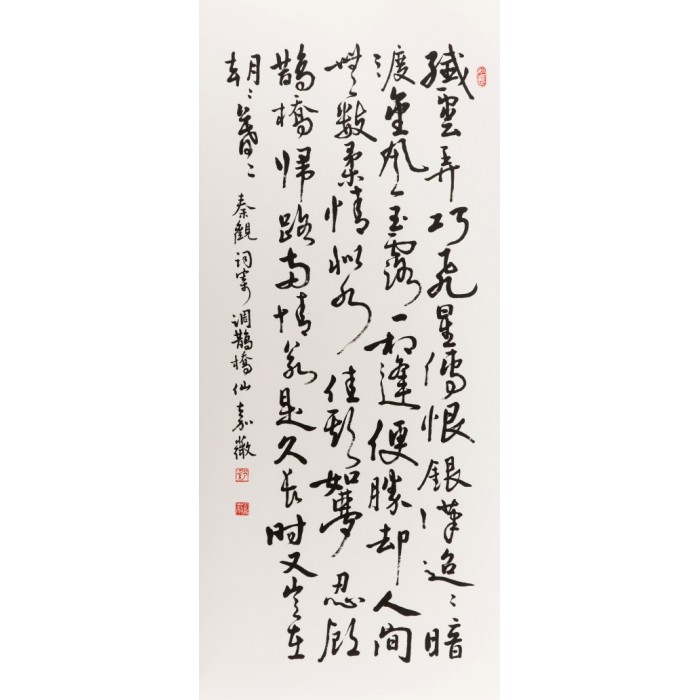 纖雲弄巧飛星傳恨銀漢迢〻暗
渡金風玉露一相逢便勝却人間
無數柔情似水佳期如夢忍顧
鵲橋歸路兩情若是久長时又豈在
朝〻暮〻 秦觀詞寄調鵲橋仙 嘉徽